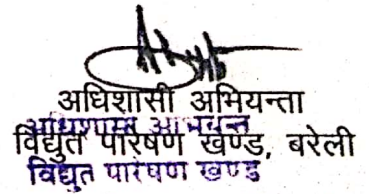 अधिशासी अभियन्ता
अधिशासी अभियन्ता
विद्युत पारेषण खण्ड, बरेली
विद्युत पारेषण खण्ड